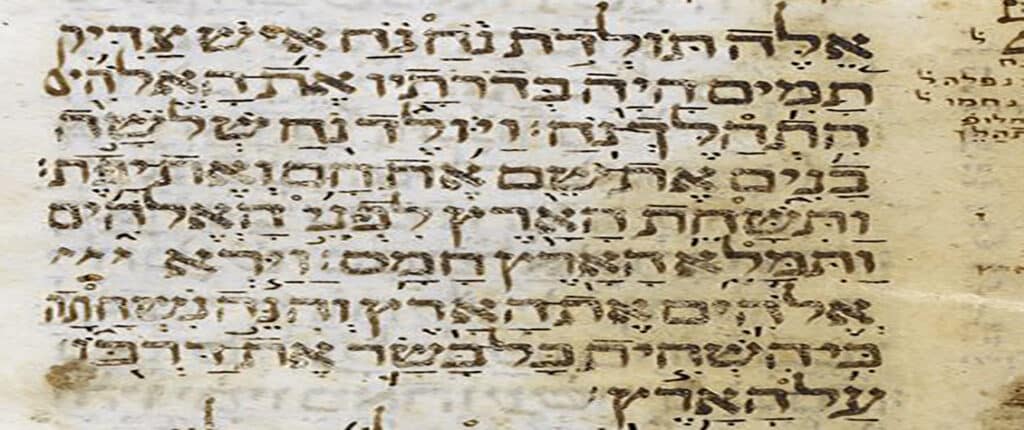 אֵלֶּה תּוֹלְדֹת נֹחַ נֹחַ אִישׁ צַדִּיק
תָּמִים הָיָה בְּדֹרֹתָיו אֶת הָאֱלֹהִים
הִתְהַלֶּךְ נֹחַ׃ וַיּוֹלֶד נֹחַ שְׁלֹשָׁה
בָנִים אֶת שֵׁם אֶת חָם וְאֶת יָפֶת׃
וַתִּשָּׁחֵת הָאָרֶץ לִפְנֵי הָאֱלֹהִים
וַתִּמָּלֵא הָאָרֶץ חָמָס׃ וַיַּרְא
אֱלֹהִים אֶת הָאָרֶץ וְהִנֵּה נִשְׁחָתָה
כִּי הִשְׁחִית כָּל בָּשָׂר אֶת דַּרְכּוֹ
עַל הָאָרֶץ׃